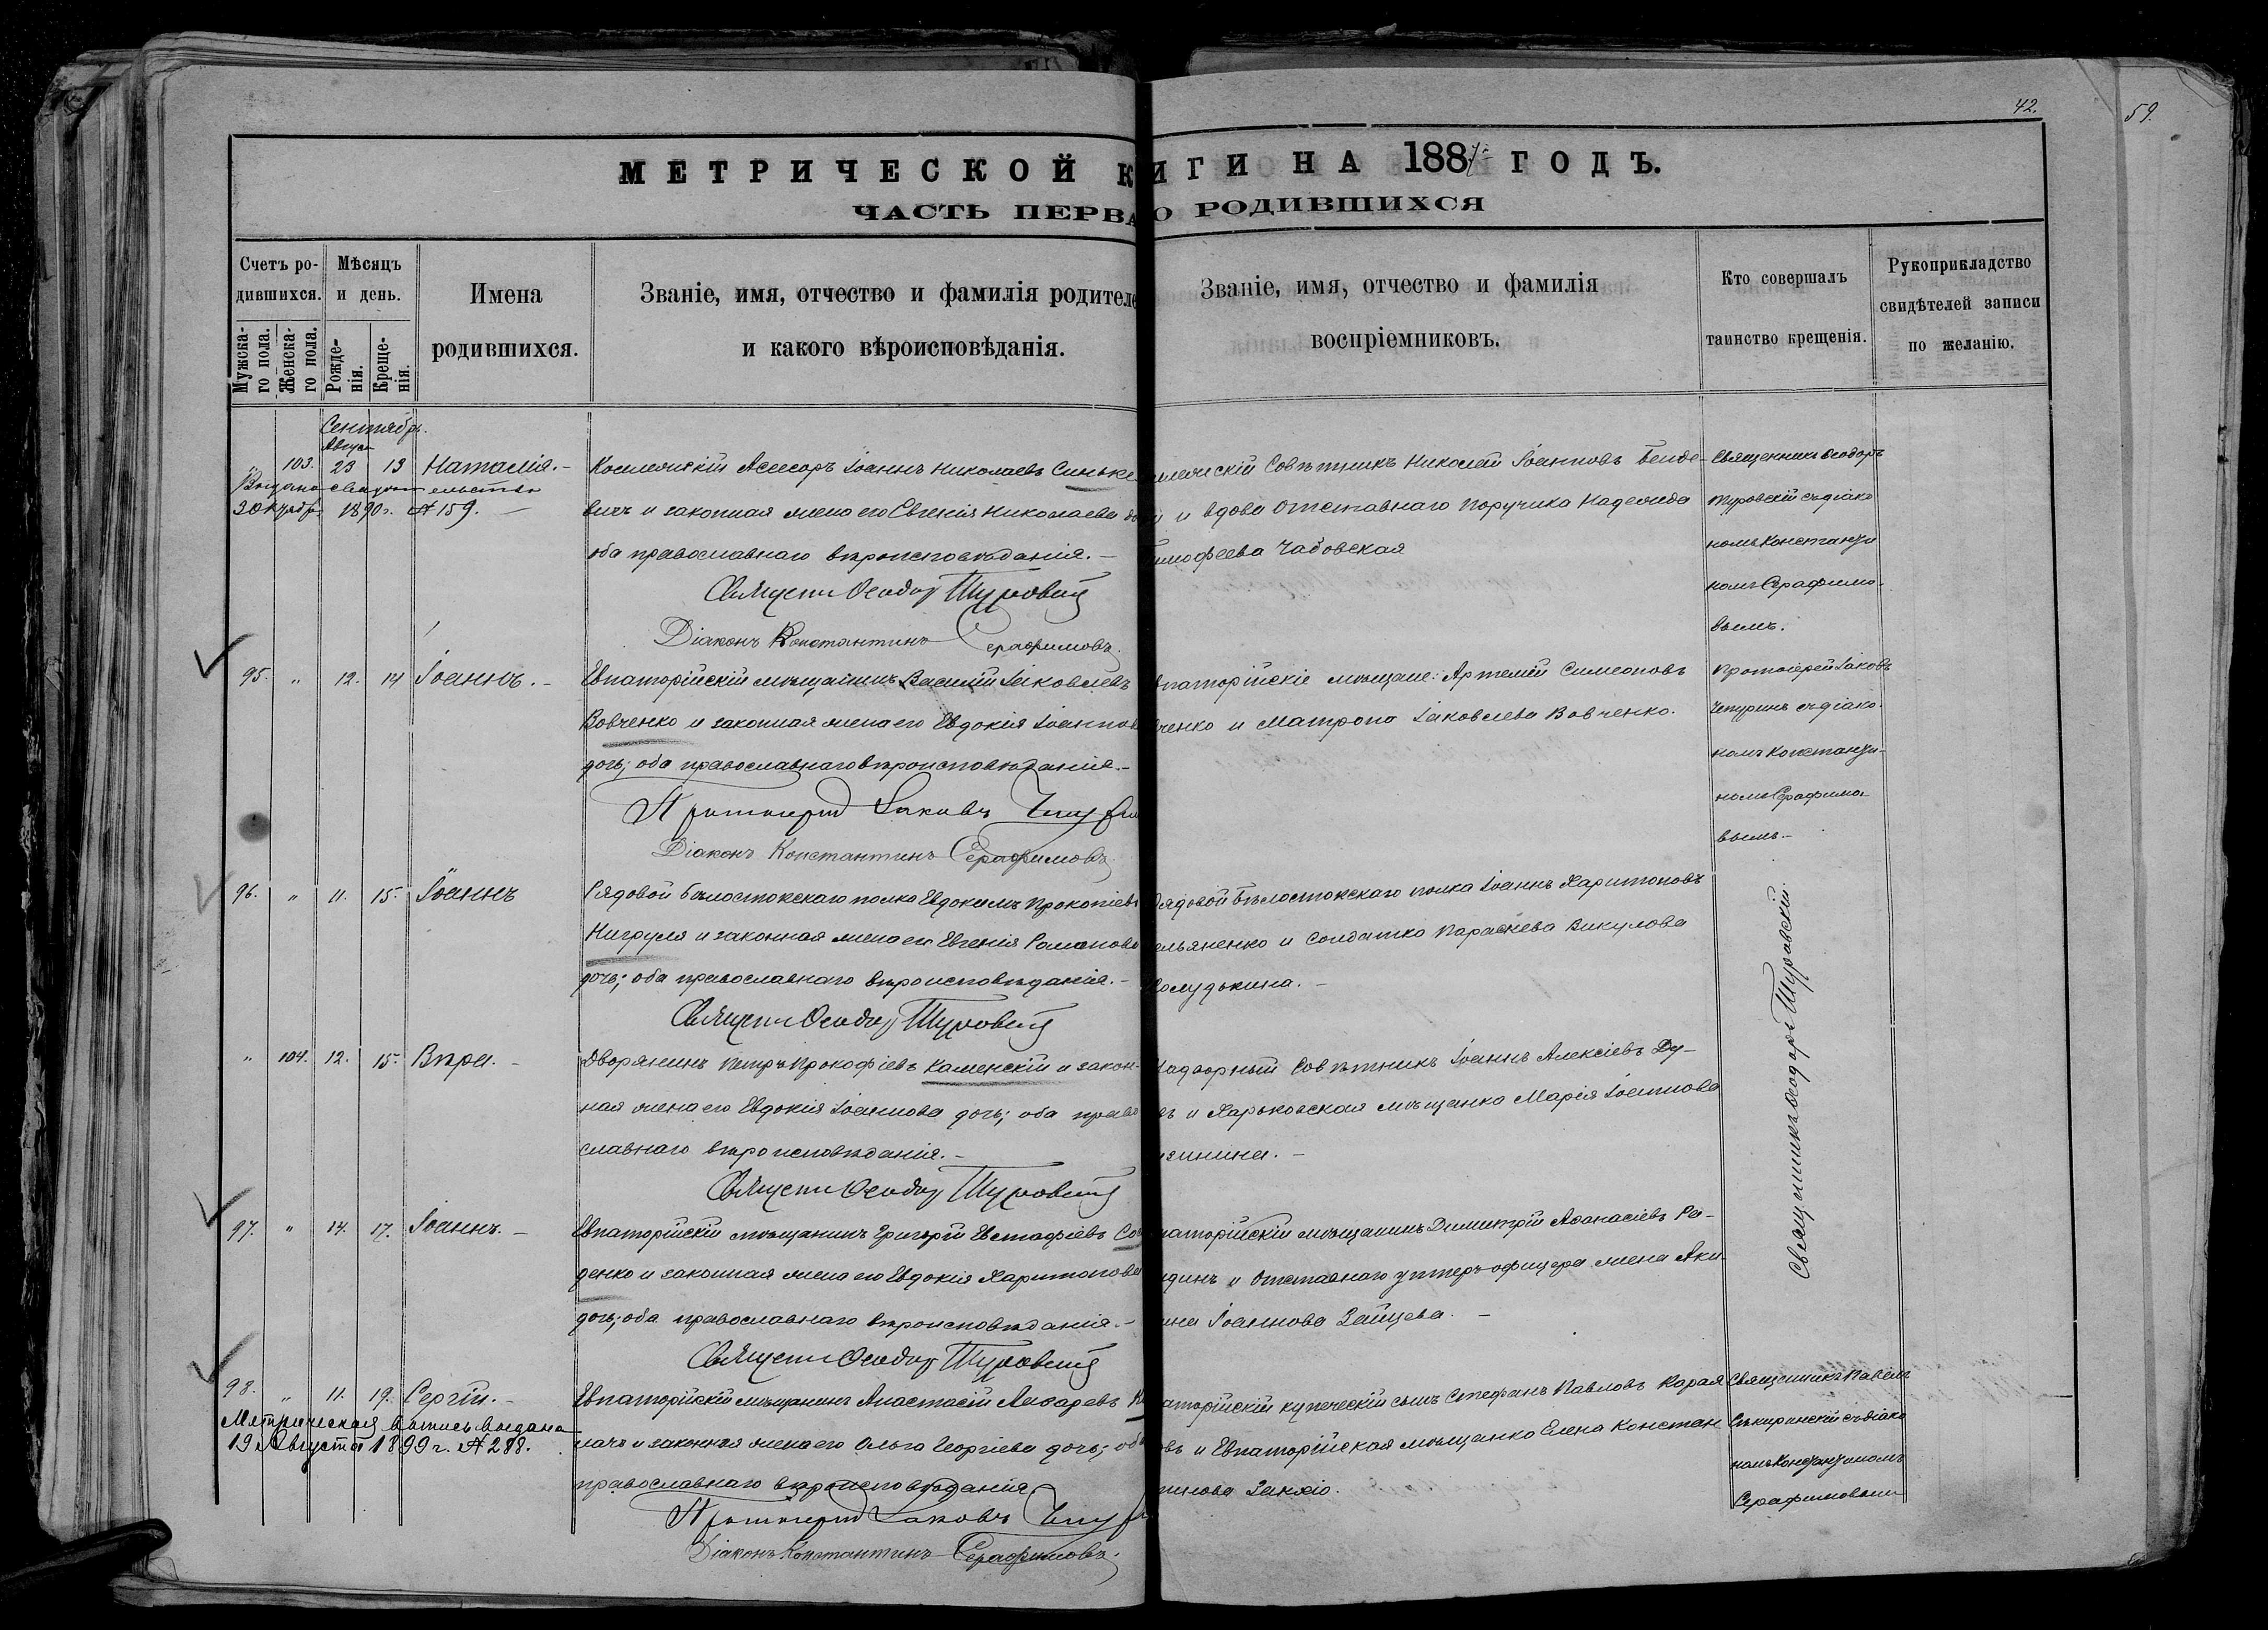 42.
59.
МЕТРИЧЕСКОЙ К
ИГИ НА 188 ГОДЪ.
ЧАСТЬ ПЕРВА
О РОДИВШИХСЯ
Счетъ ро-
дившихся.
Мужска-
го пола.
Женска-
го пола.
Мѣсяцъ
и день.
Рожде-
нія.
Креще-
нія.
Имена
родившихся.
Званіе, имя, отчество и фамилія родителе
и какого вѣроисповѣданія.
Званіе, имя, отчество и фамилія
воспріемниковъ.
Кто совершалъ
таинство крещенія.
Рукоприкладство
свидѣтелей записи
по желанію.
Сентябрь.
Август
" 103. 23 13 Наталія. -
Выдано свидетельство
30 1890 г. № 159. -
Коллежскій Асессоръ Іоаннъ Николаевъ Синьке
вичъ и законная жена его Евгенія Николаева до
оба православнаго вѣроисповѣданія. -
Діаконъ Константинъ Серафимовъ.
лежскій Совѣтникъ Николай Іоанновъ Бенде-
й и вдова отставнаго поручика Надежда
имофеева Чабовская
Священникъ Ѳеодоръ
Туровскій съ діако
номъ Константи
номъ Серафимо-
вымъ.
95. " 12. 14 Іоаннъ. -
Евпаторійскій мѣщанинъ Василій Іаковлевъ
Вовченко и законная жена его Евдокія Іоаннов
дочь; оба православнаго вѣроисповѣданія. -
Протоіерей Іаковъ
Діаконъ Константинъ Серафимовъ
впаторійскіе мѣщане: Артемій Симеоновъ
ченко и Матрона Іаковлева Вовченко.
Протоіерей Іаковъ
Чепуринъ съ діако-
номъ Константи-
номъ Серафимо-
вымъ. -
96. " 11. 15. Іоаннъ
Рядовой Бѣлостокскаго полка Евдокимъ Прокопіевъ
Нигруля и законная жена его Евгенія Романова
дочь; оба православнаго вѣроисповѣданія. -
ядовой Бѣлостокскаго полка Іоаннъ Харитоновъ
ельяненко и Солдатка Параскева Викулова
олудькина. -
Священникъ Ѳеодоръ Туровскій.
" 104. 12. 15. Вѣра. -
Дворянинъ Петръ Прокофіевъ Каменскій и закон-
ная жена его Евдокія Іоаннова дочь; оба право
славнаго вѣроисповѣданія. -
адворный Совѣтникъ Іоаннъ Алексіевъ Ду-
въ и Харьковская мѣщанка Марія Іоаннова
97. " 14. 17. Іоаннъ. -
Евпаторійскій мѣщанинъ Григорій Евстафіевъ Со
денко и законная жена его Евдокія Харитонова
дочь; оба православнаго вѣроисповѣданія. -
паторійскій мѣщанинъ Димитрій Аѳанасіевъ Ра-
динъ и отставнаго унтеръ-офицера жена Аки-
ина Іоаннова Зайцева. -
98. " 11. 19. Сергій. -
Метрическая выпись выдана
19 Августа 1899 г. № 288.
Евпаторійскій мѣщанинъ Анастасій Лазаревъ
мачъ и законная жена его Ольга Георгіева дочь; оба
православнаго вѣроисповѣданія.
Протоіерей Іаковъ
Діаконъ Константинъ Серафимовъ.
аторійскій купеческій сынъ Стефанъ Павловъ Карая
въ и Евпаторійская мѣщанка Елена Констан
тинова
Священникъ Павелъ
Сѣкиринскій съ діако
номъ Константиномъ
Серафимовымъ